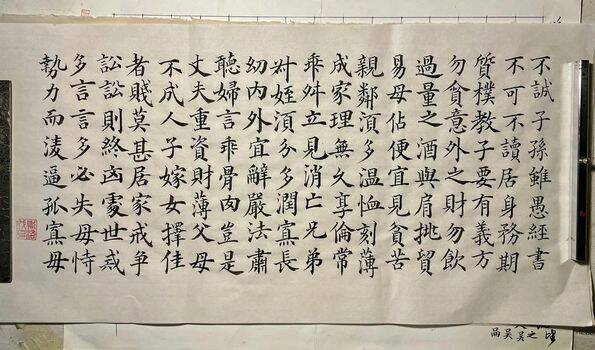 不誠子孫雖愚經書
不可不讀居身務期
質樸教子要有義方
勿貪意外之財勿飲
過量之酒與肩挑貿
易毋佔便宜見貧苦
親鄰須多温恤刻薄
成家理無久享倫常
乖舛立見消亡兄弟
叔姪須分多潤寡長
幼内外宜辭嚴法肅
聽婦言乖骨肉豈是
丈夫重資財薄父母
不成人子嫁女擇佳
者賤莫甚居家戒争
訟訟則終凶處世戒
多言言多必失毋恃
勢力而凌逼孤寡毋